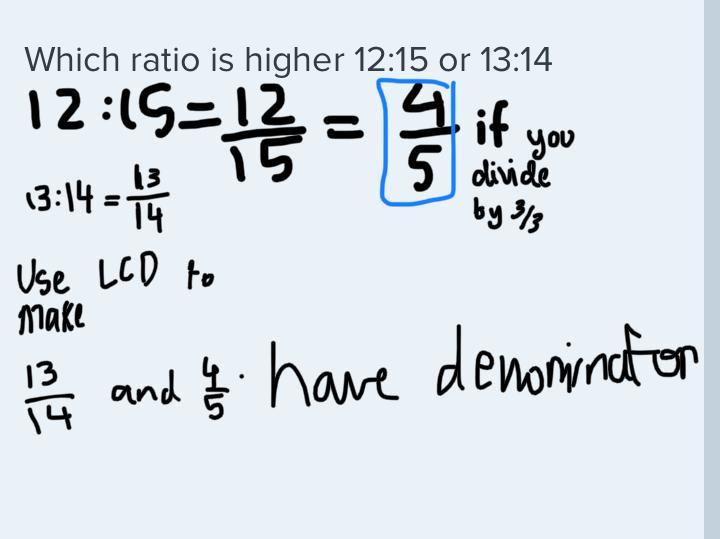 Which ratio is higher 12:15 or 13:14
12:15 = 12/15 = 4/5 if you
divide
by 3/3
13:14 = 13/14
Use LCD to
make
13/14 and 4/5. have denominator